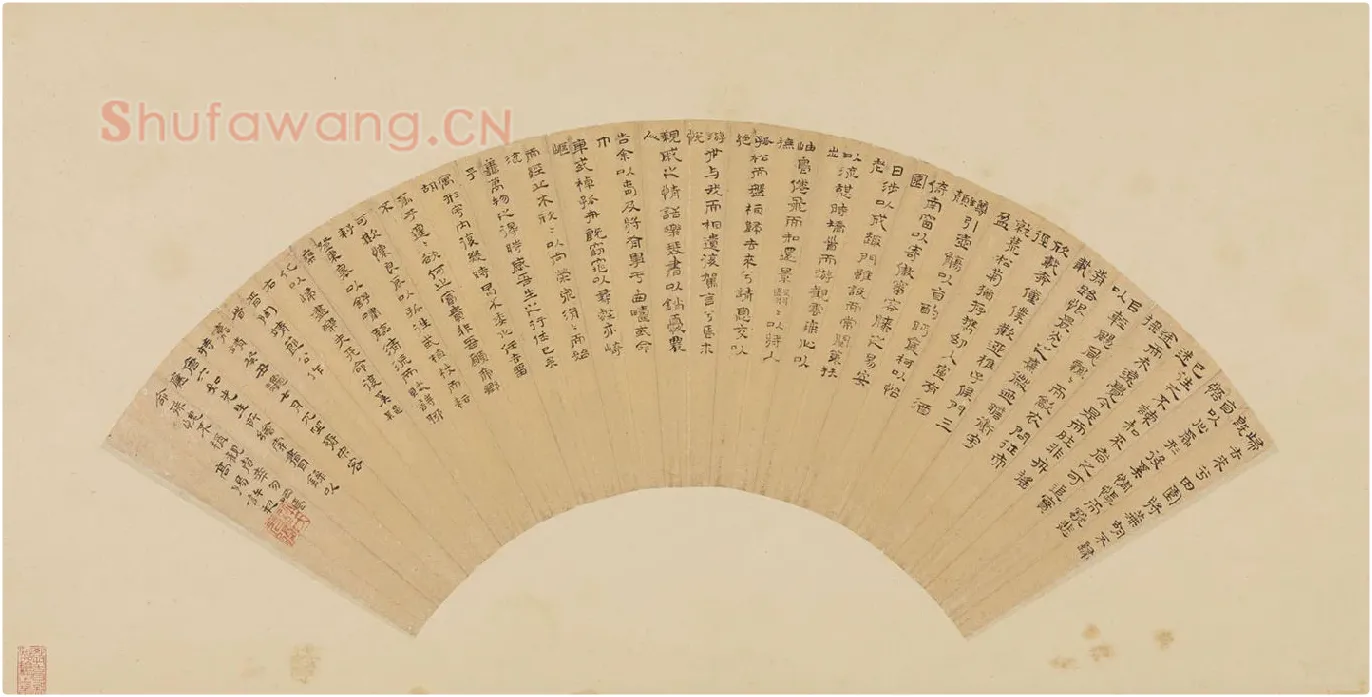 Shufawang.CN
歸去來兮田園將蕪胡不歸
既自以心為形役奚惆悵而獨悲
悟已往之不諫知來者之可追寔
迷途而未遠覺今是而昨非舟搖
搖以輕颺風飄〻而歙衣問征夫
以前路恨晨光之熹微迺瞻衡宇
載欣載奔僮僕歡迎稚子候門三
徑就荒松菊猶存攜幼入室有酒
盈
尊引壺觴以自酌眄庭柯以怡
顏
倚南窗以寄傲審容膝之易安
園
日涉以成趣門雖設而常關策扶
老
以流憩時矯首而游觀雲無心以
出
岫鳥倦飛而知還景翳翳以將入
撫
孤松而盤桓歸去來兮請息交以
絕
游世與我而相遺復駕言兮焉求
悅
親戚之情話樂琴書以銷憂農
人
告余以春及將有事于西疇或命
巾
車或棹孤舟既窈窕以尋壑亦崎
嶇
而經丘木欣〻以向榮泉涓〻而始
流
羨萬物之得時感吾生之行休已矣
乎
寓形宇內復幾時曷不委心任去留
胡
為乎遑〻欲何之富貴非吾願帝鄉
不
可期懷良辰以孤往或植杖而耘
耔
登東皋以舒嘯臨清流而賦詩聊
乘
化以歸盡樂夫天命復奚疑
右陶靖節公作
唐六如先生所繪
高陽許初